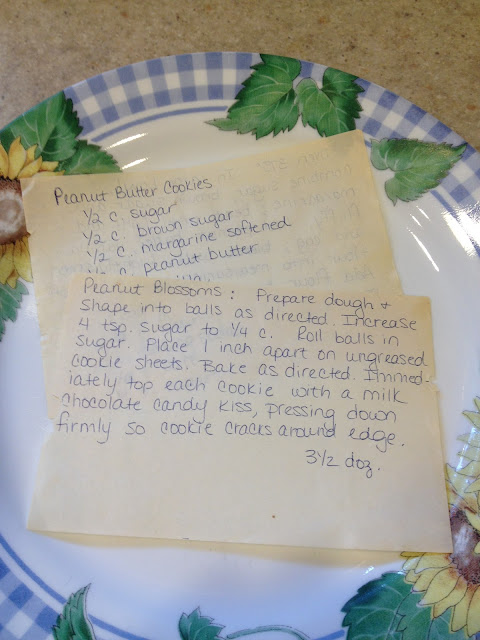 Peanut Butter Cookies
1/2 c. sugar
1/2 c. brown sugar
1/2 c. margarine softened
peanut butter
Peanut Blossoms: Prepare dough &
shape into balls as directed. Increase
4 tsp. sugar to 1/4 c. Roll balls in
sugar. Place 1 inch apart on ungreased
cookie sheets. Bake as directed. Immed-
iately top each cookie with a milk
chocolate candy kiss, pressing down
firmly so cookie cracks around edge.
3 1/2 doz.